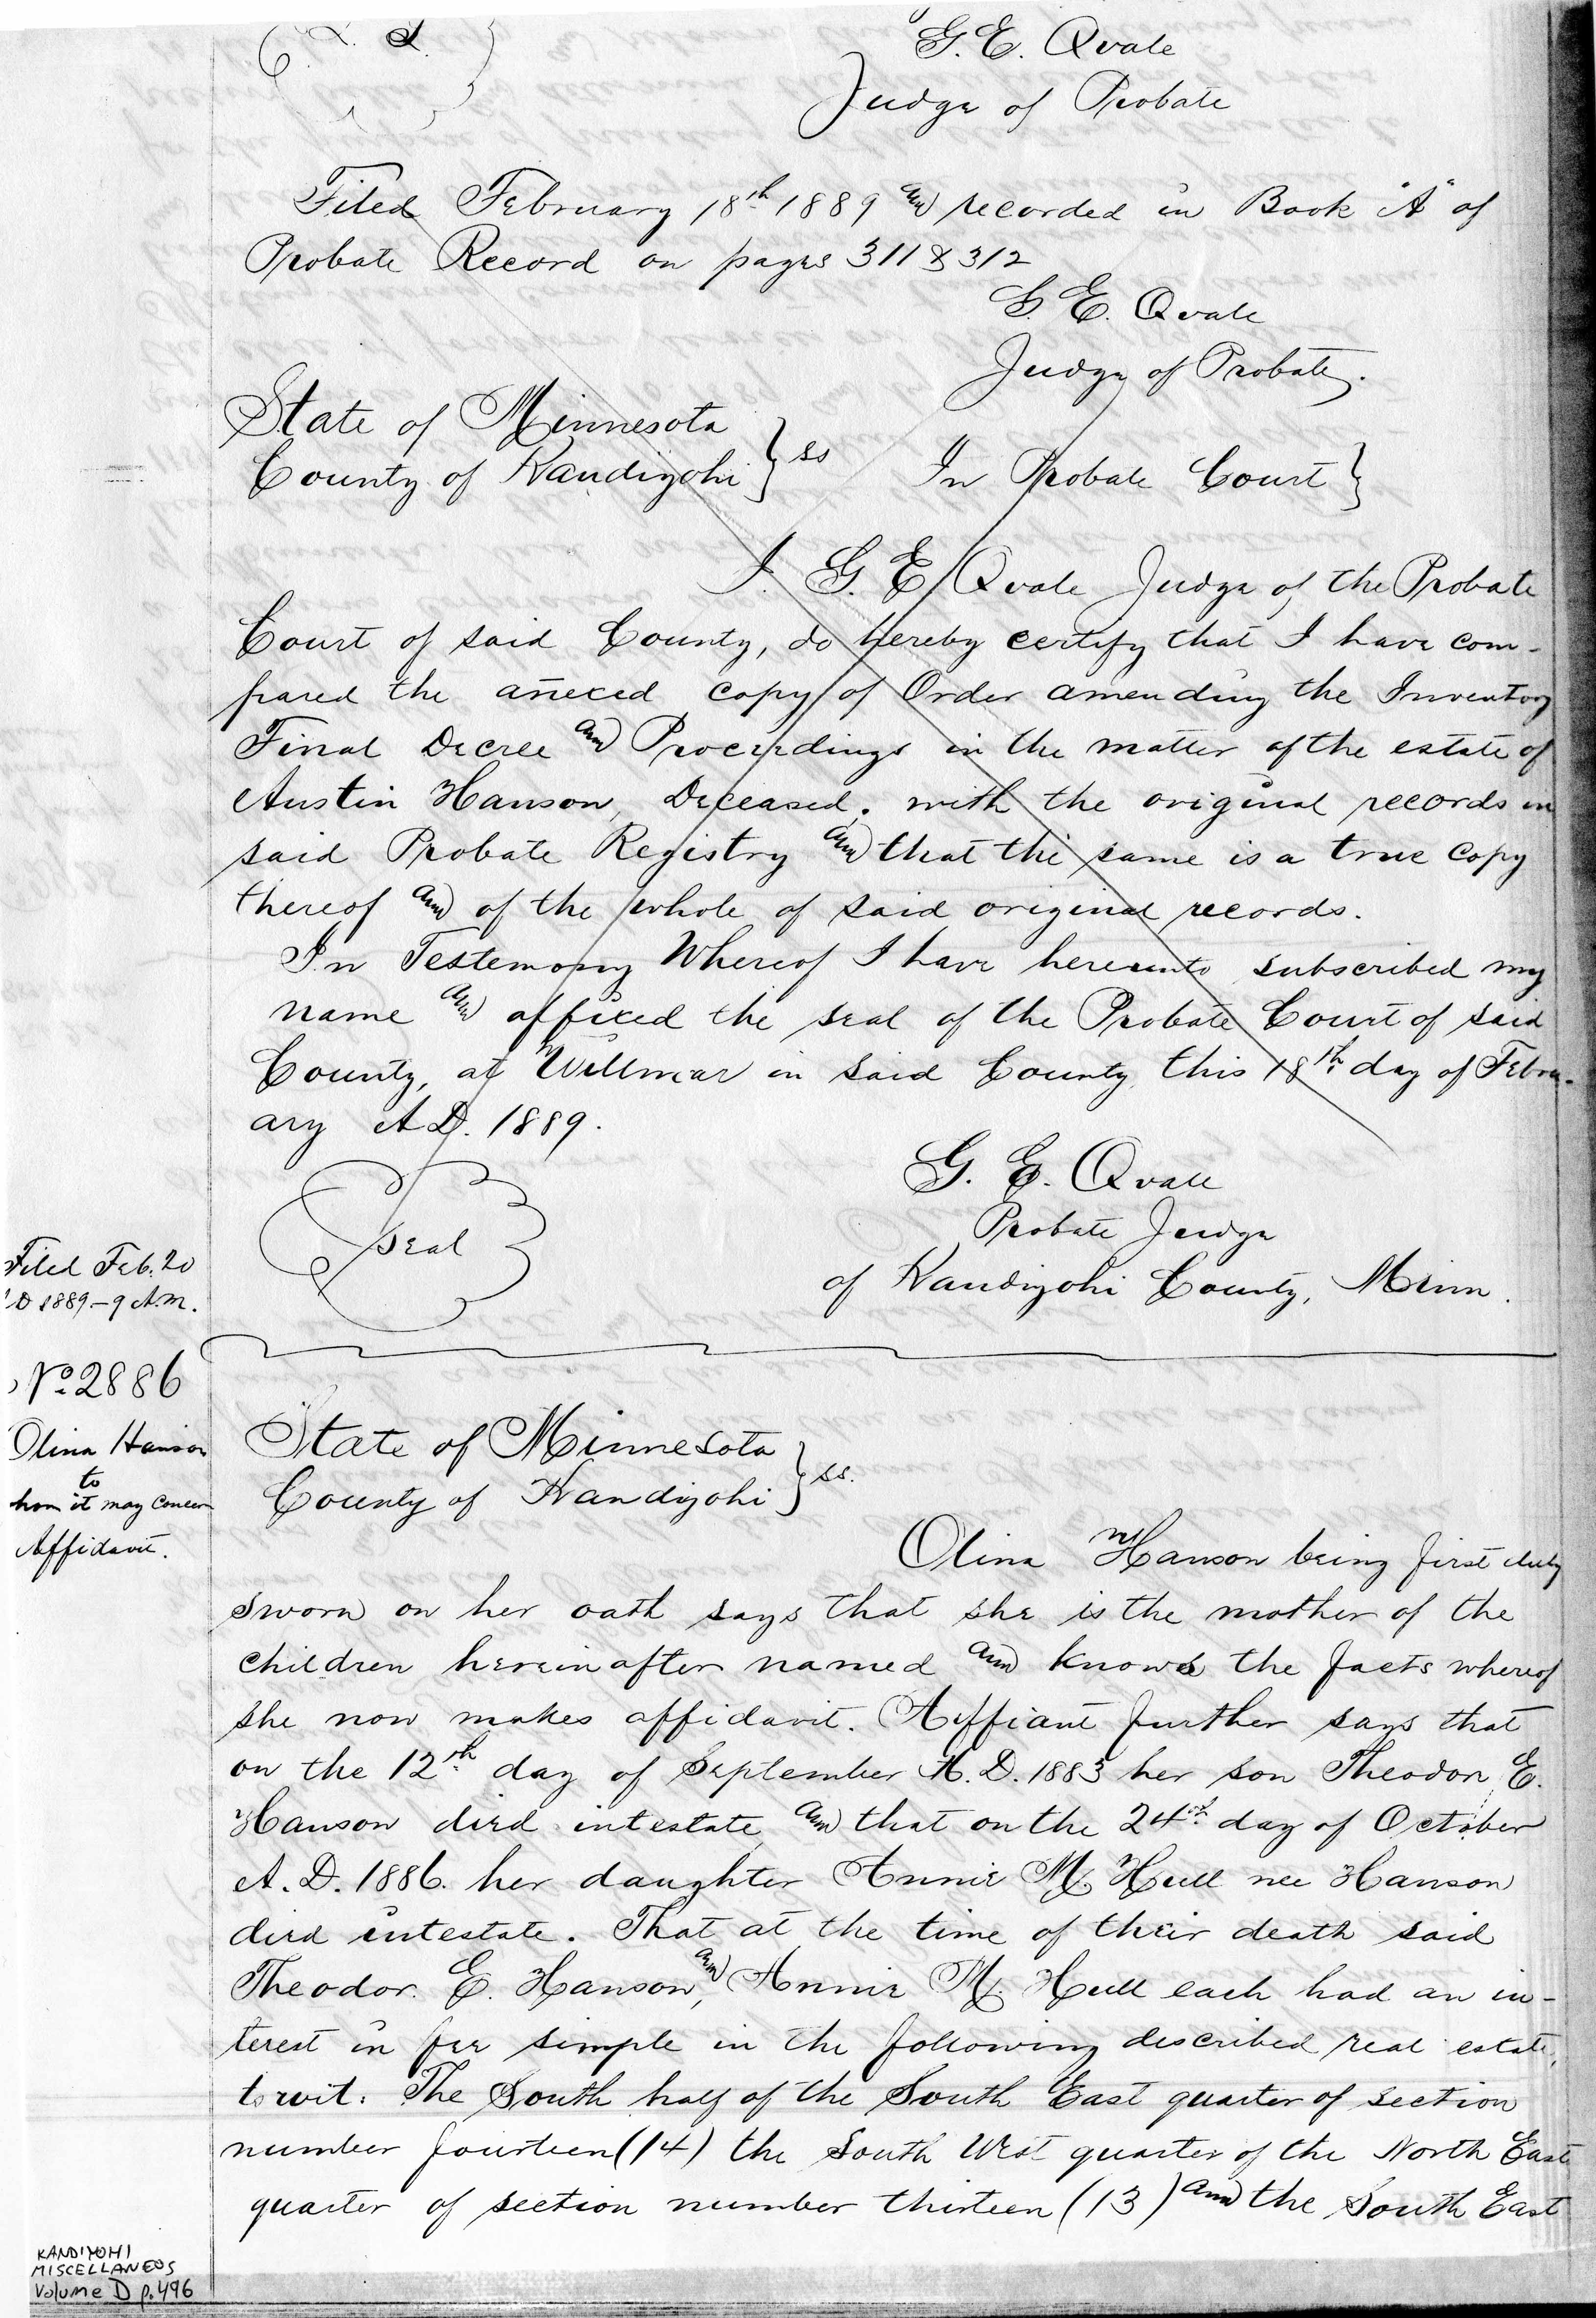 L. S.
G. E. Qvale
Judge of Probate
Filed February 18th 1889 and recorded in Book "A" of
Probate Record on pages 311 & 312
G. E. Qvale
Judge of Probate.
State of Minnesota
County of Kandiyohi } ss In Probate Court }
I. G. E Qvale Judge of the Probate
Court of said County, do hereby certify that I have com-
pared the an̄exed copy of Order amending the Inventory
Final Decree and Proceedings in the matter of the estate of
Austin Hanson, Deceased. with the original records in
said Probate Registry and that the same is a true copy
thereof and of the whole of said original records.
In Testemony Whereof I have hereunto subscribed my
name and affixed the seal of the Probate Court of said
County, at Willmar in said County this 18th day of Febru-
ary A.D. 1889.
Seal
G. E. Qvale
Probate Judge
of Kandiyohi County, Minn.
Filed Feb. 20
D 1889 - 9 A.M.
No. 2886
Olina Hanson
to
hom it may concern
Affidavit.
State of Minnesota
County of Kandiyohi } ss.
Olina Hanson being first duly
sworn on her oath says that she is the mother of the
children hereinafter named and knows the facts whereof
she now makes affidavit. Affiant further says that
on the 12th day of September A.D. 1883 her son Theodor E.
Hanson died intestate and that on the 24th day of October
A.D. 1886. her daughter Annie M. Hull nee Hanson
died intestate. That at the time of their death said
Theodor. E. Hanson, and Annie M. Hull each had an in-
terest in fee simple in the following described real estate,
to wit: The South half of the South East quarter of section
number fourteen (14) the South West quarter of the North East
quarter of section number thirteen (13) and the South East
KANDIYOHI
MISCELLANEOS
Volume D p.496